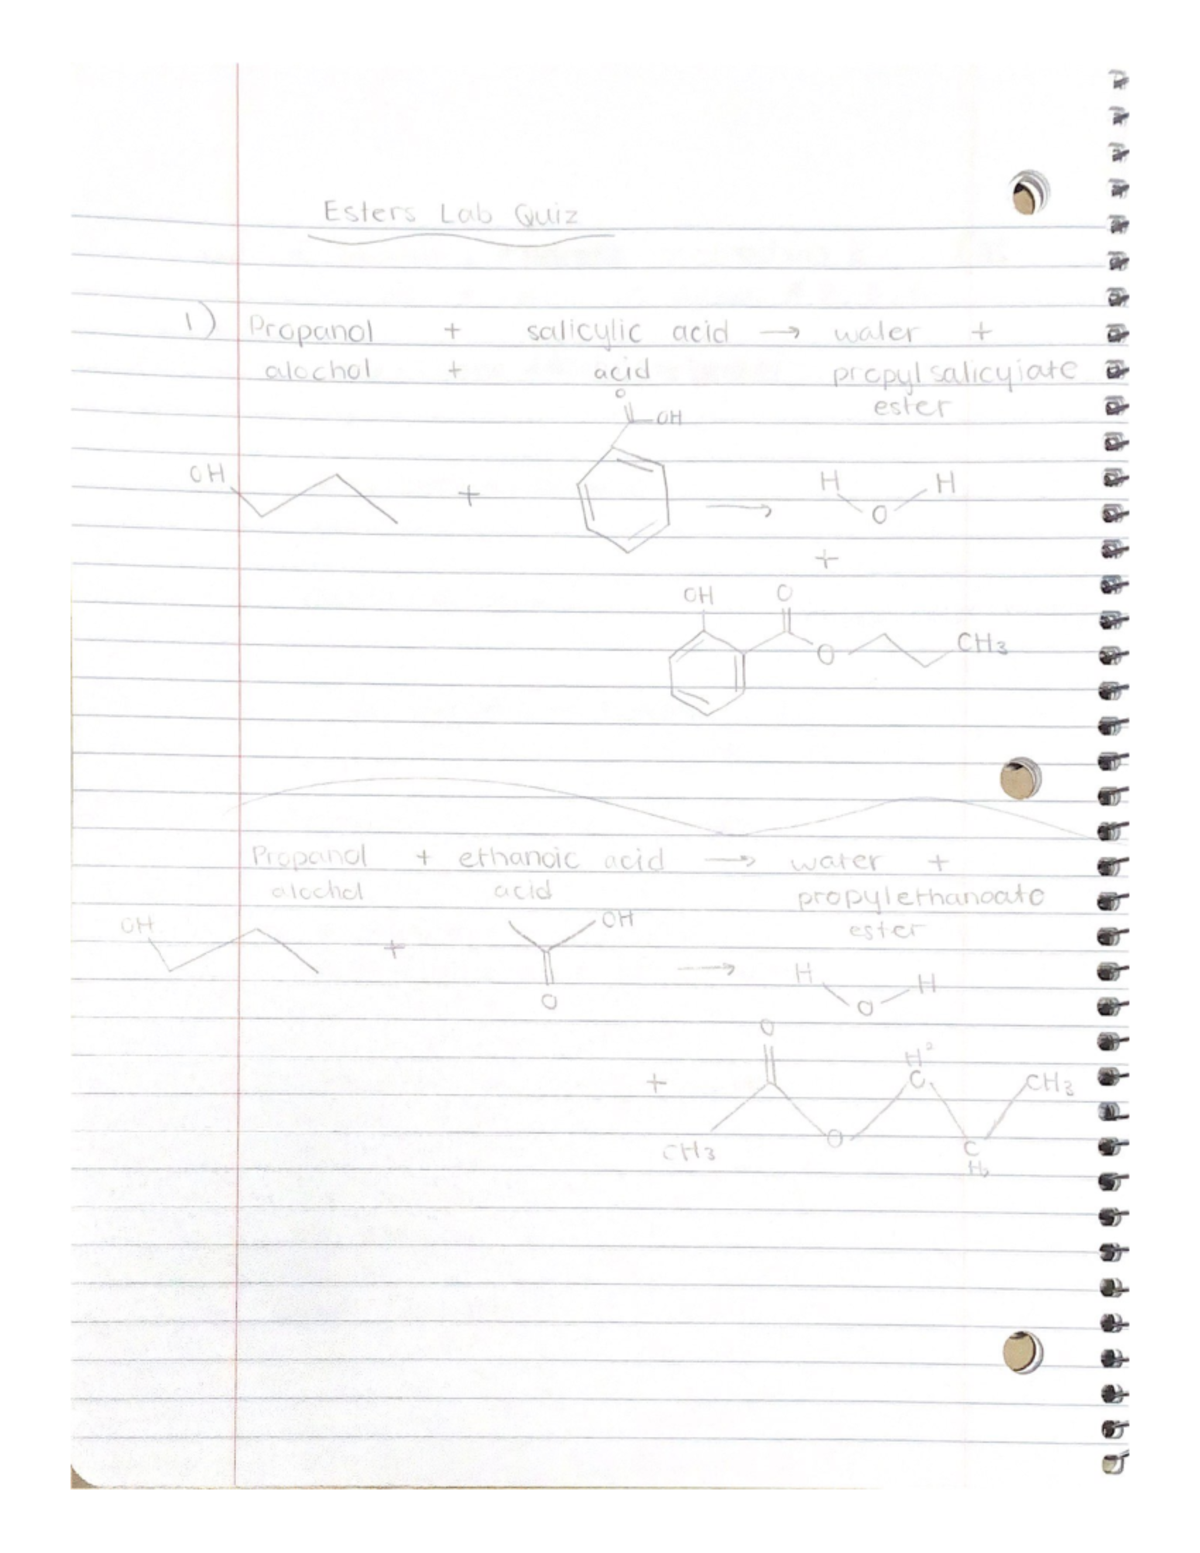 Esters Lab Quiz
1) Propanol + salicylic acid → water +
alochol + acid propylsalicyiate
ester
O
OH
OH
+ → H H
O
+
OH O
O CH3
Propanol + ethanoic acid → water +
alochol acid propylethanoate
ester
OH OH
+ → H H
O O
O
+ H2
C CH3
O
CH3 C
H2